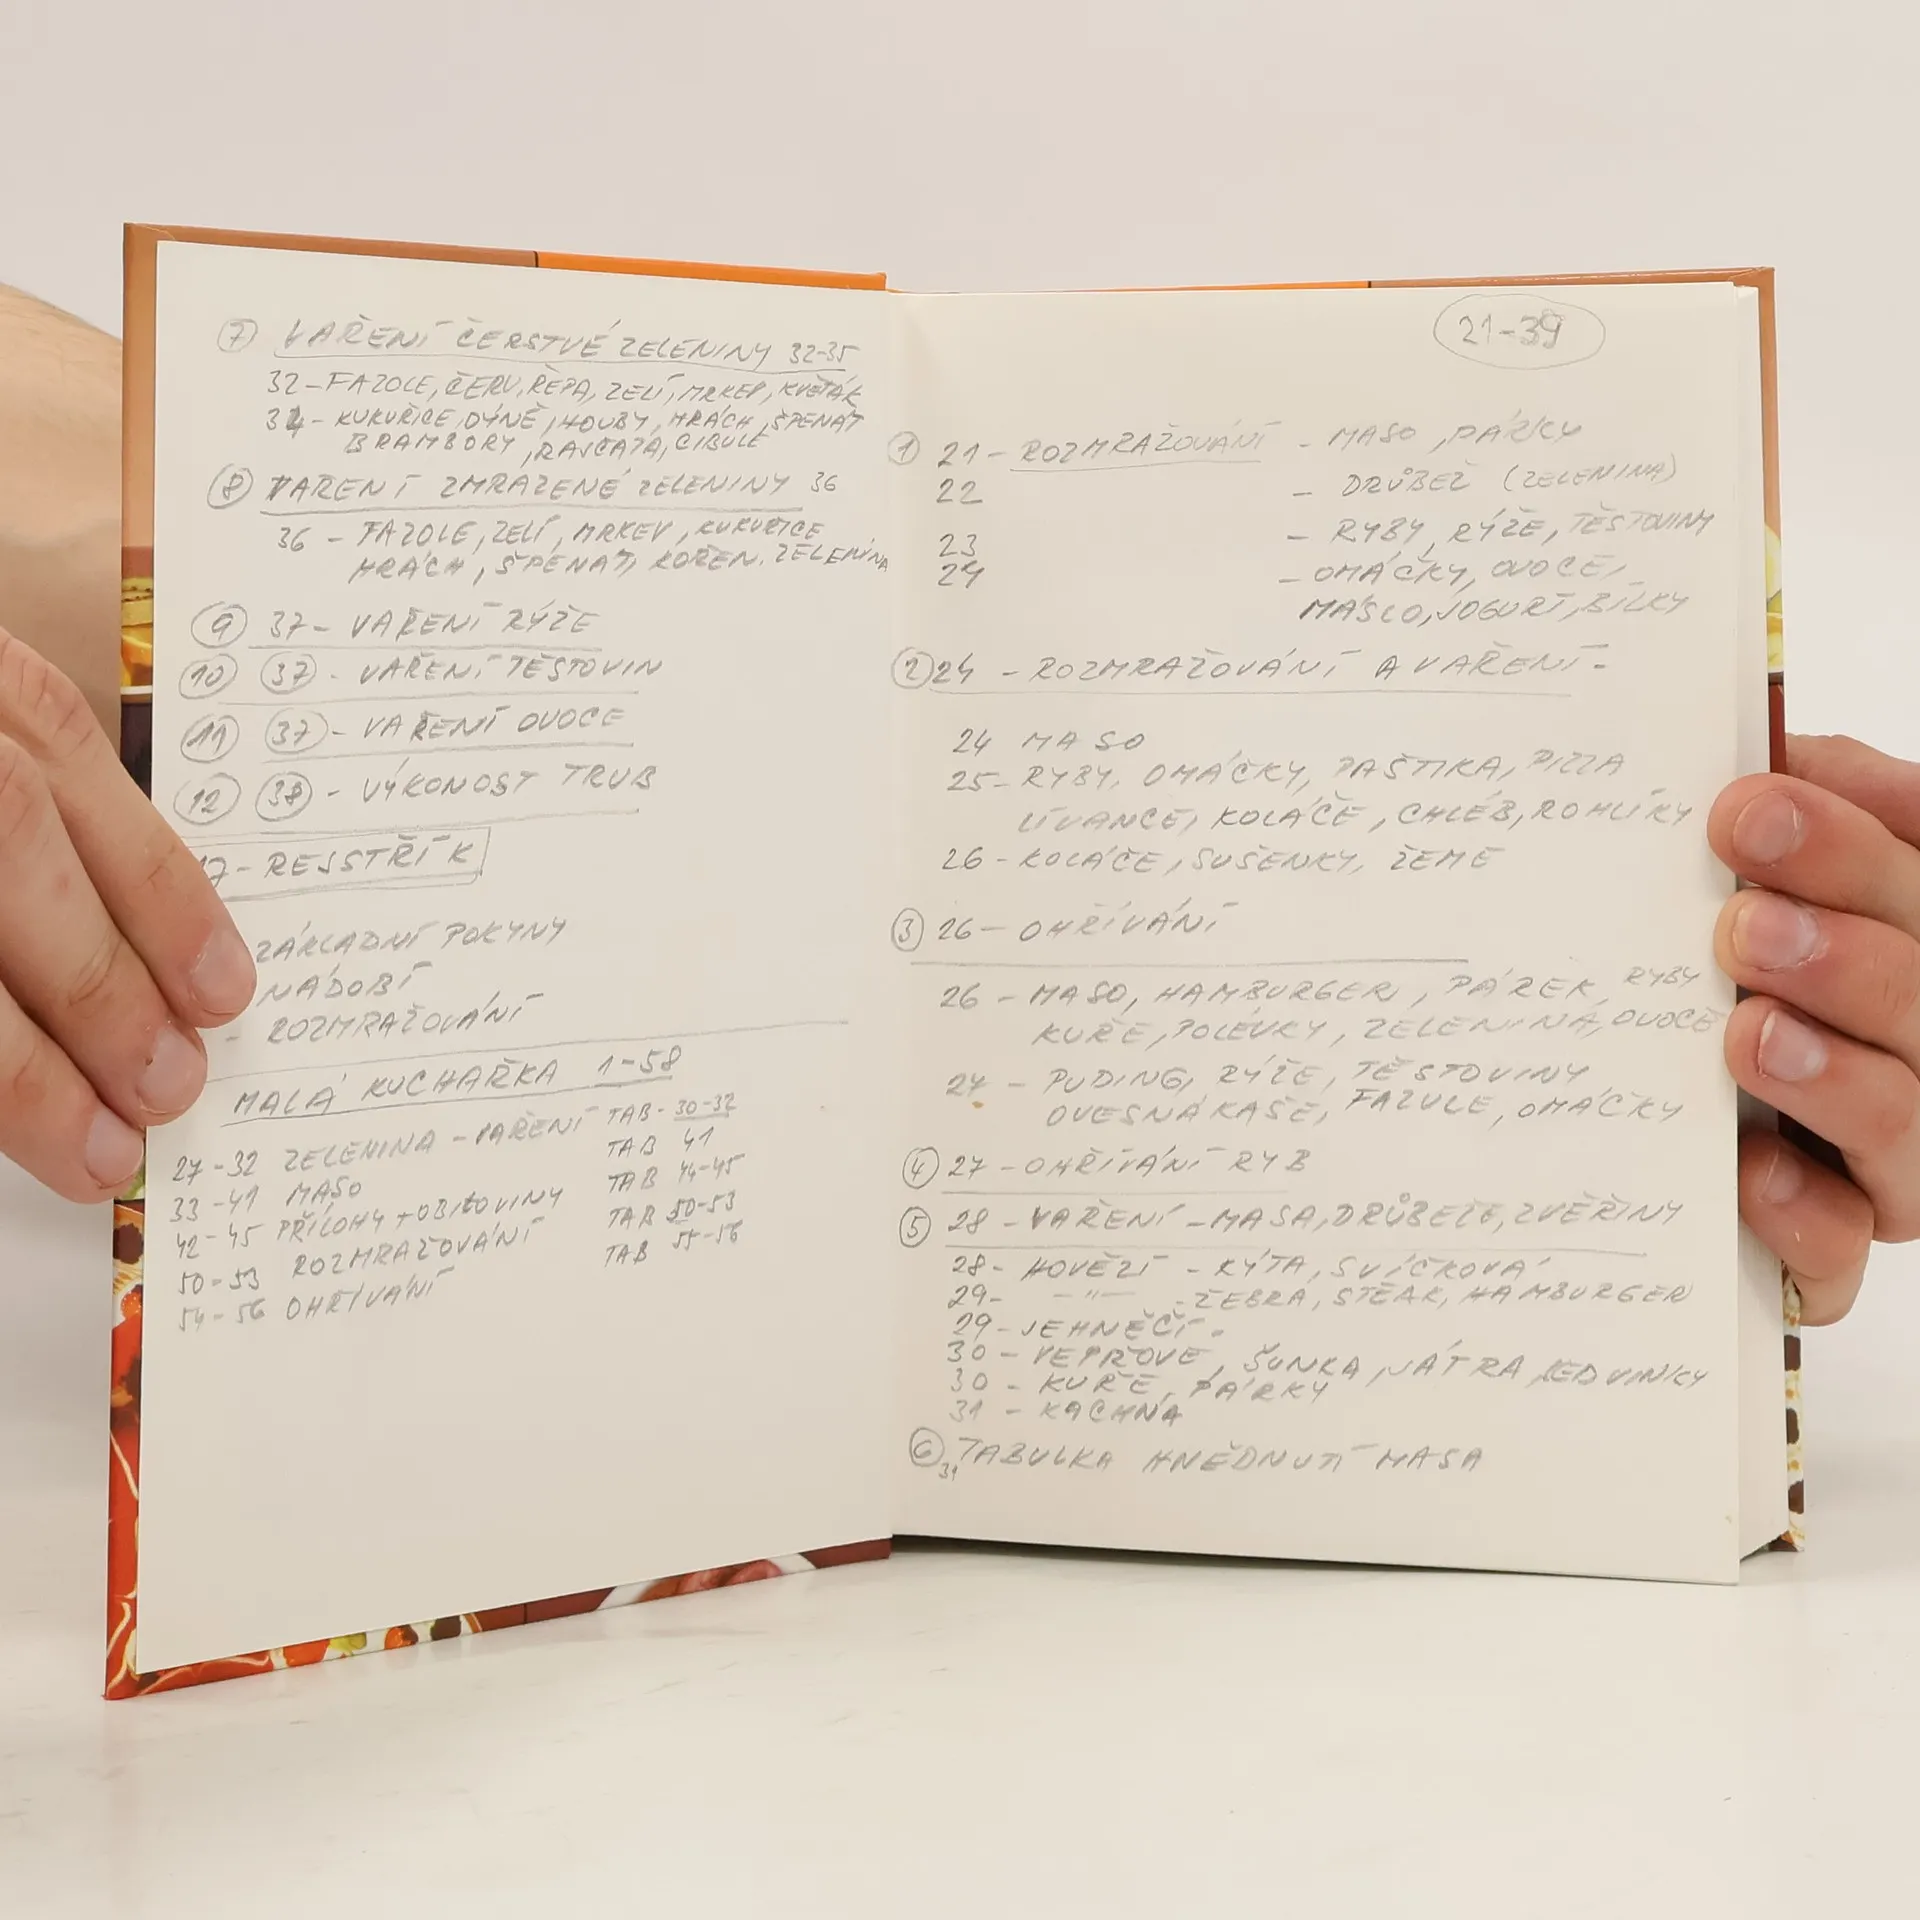 ⑦ VAŘENÍ ČERSTVÉ ZELENINY 32-35
32-FAZOLE, ČERV. ŘEPA, ZELÍ, MRKEV, KVĚTÁK
34- KUKUŘICE, DÝNĚ, HOUBY, HRÁCH, ŠPENÁT
BRAMBORY, RAJČATA, CIBULE
⑧ VAŘENÍ ZMRAZENÉ ZELENINY 36
36 - FAZOLE, ZELÍ, MRKEV, KUKUŘICE
HRÁCH, ŠPENÁT, KOŘEN. ZELENINA
⑨ 37- VAŘENÍ RÝŽE
⑩ 37 - VAŘENÍ TĚSTOVIN
⑪ 37 - VAŘENÍ OVOCE
⑫ 38 - VÝKONOST TRUB
17- REJSTŘÍK
ZÁKLADNÍ POKYNY
NÁDOBÍ
- ROZMRAŽOVÁNÍ
MALÁ KUCHAŘKA 1-58
27-32 ZELENINA - VAŘENÍ TAB- 30-32
33-41 MASO TAB 41
42-45 PŘÍLOHY + OBILOVINY TAB 44-45
50-53 ROZMRAŽOVÁNÍ TAB 50-53
54-56 OHŘÍVÁNÍ TAB 55-56
21-39
① 21- ROZMRAŽOVÁNÍ - MASO, PÁRKY
22 - DRŮBEŽ (ZELENINA)
23 - RYBY, RÝŽE, TĚSTOVINY
24 - OMÁČKY, OVOCE,
MÁSLO, JOGURT, BÍLKY
② 24 - ROZMRAŽOVÁNÍ A VAŘENÍ -
24 MASO
25- RYBY, OMÁČKY, PAŠTIKA, PIZZA
LÍVANCE, KOLÁČE, CHLÉB, ROHLÍKY
26- KOLÁČE, SUŠENKY, ŽEMLE
③ 26- OHŘÍVÁNÍ
26 - MASO, HAMBURGER, PÁREK, RYBY
KUŘE, POLÉVKY, ZELENINA, OVOCE
27 - PUDING, RÝŽE, TĚSTOVINY
OVESNÁ KAŠE, FAZULE, OMÁČKY
④ 27 - OHŘÍVÁNÍ RYB
⑤ 28 - VAŘENÍ - MASA, DRŮBEŽE, ZVĚŘINY
28- HOVĚZÍ - KÝTA, SVÍČKOVÁ
29- -"- - ŽEBRA, STEAK, HAMBURGER
29- JEHNĚČÍ -
30 - VEPŘOVÉ, ŠUNKA, JÁTRA, LEDVINKY
30 - KUŘE, PÁRKY
31 - KACHNA
⑥ 31 TABULKA HNĚDNUTÍ MASA